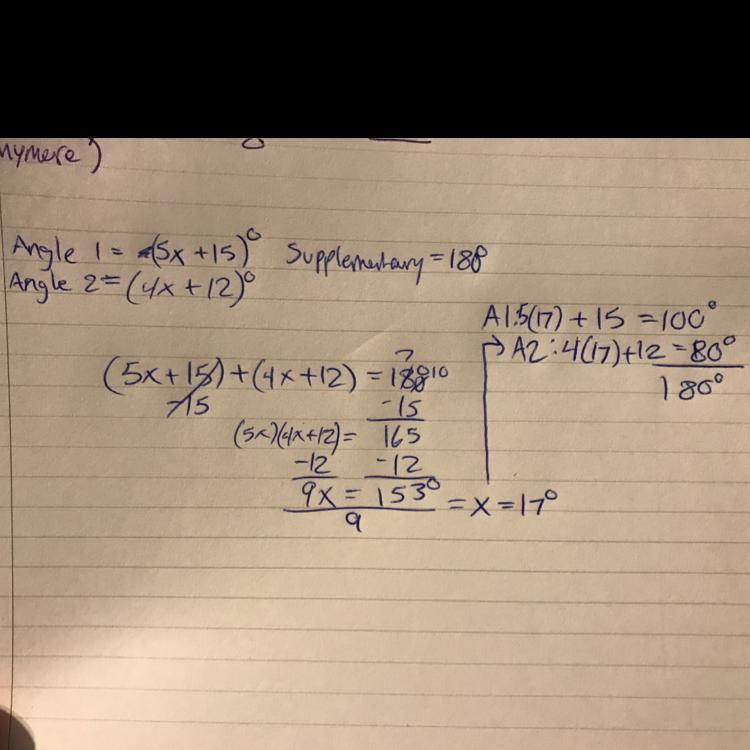 Angle 1 = (5x + 15)° Supplementary = 180
Angle 2 = (4x + 12)°
A1: 5(17) + 15 = 100°
→ A2: 4(17) + 12 = 80°
180°
(5x + 15) + (4x + 12) = 180
7 10
-15 -15
(5x)(4x+12) = 165
-12 -12
9x = 153° = x = 17°
9